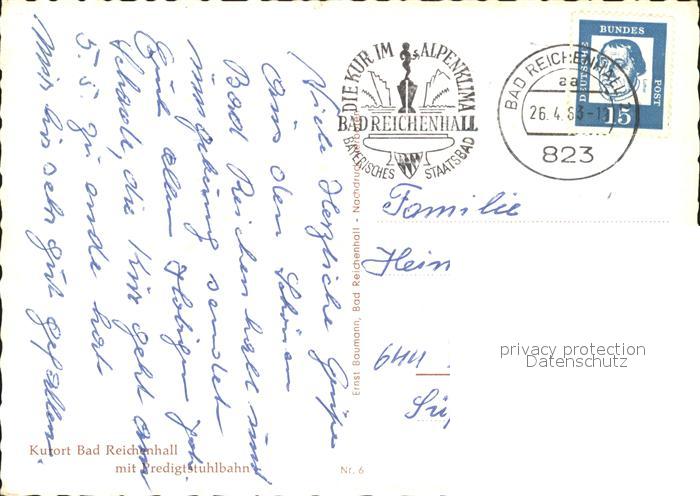 Viele Herzliche Grüße
aus den Schönen
Bad Reichenhall und
Umgebung sendet
Euch allen
Schade, die Kur geht am
5.5. zu ende hat
Mir bis sehr gut gefallen.
Kurort Bad Reichenhall
mit Predigtstuhlbahn
Nr. 6
Ernst Baumann, Bad Reichenhall - Nachdruck verboten
DIE KUR IM ALPENKLIMA
BAD REICHENHALL
BAYERISCHES STAATSBAD
BAD REICHENHALL
aa
26.4.63-1
823
DEUTSCHE
BUNDES
POST
15
Familie
Hein
644
privacy protection
Datenschutz